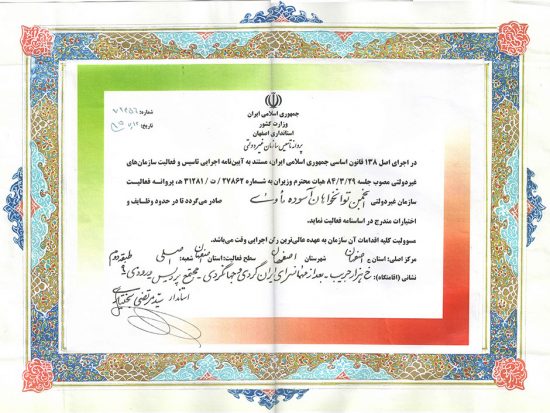 شماره: ۷۱۴۵۶
تاریخ:
جمهوری اسلامی ایران
وزارت کشور
استانداری اصفهان
پروانه تاسیس سازمان غیردولتی
در اجرای اصل ۱۳۸ قانون اساسی جمهوری اسلامی ایران، مستند به آیین‌نامه اجرایی تاسیس و فعالیت سازمان‌های
غیردولتی مصوب جلسه ۸۴/۳/۲۹ هیات محترم وزیران به شماره ۲۷۸۶۲ / ت / ۳۱۲۸۱ ه، پروانه فعالیت
سازمان غیردولتی انجمن توانخواهان آسوده صادر می‌گردد تا در حدود وظایف و
اختیارات مندرج در اساسنامه فعالیت نماید.
مسوولیت کلیه اقدامات آن سازمان به عهده عالی‌ترین رکن اجرایی وقت می‌باشد.
مرکز اصلی: استان اصفهان شهرستان اصفهان سطح فعالیت: استان اصفهان شعبه: اصلی
نشانی (اقامتگاه): خ هزار جریب - بعد از مهمانسرای ایران گردی و جهانگردی - مجتمع پردیس طبقه دوم
استاندار سید مرتضی بختیاری